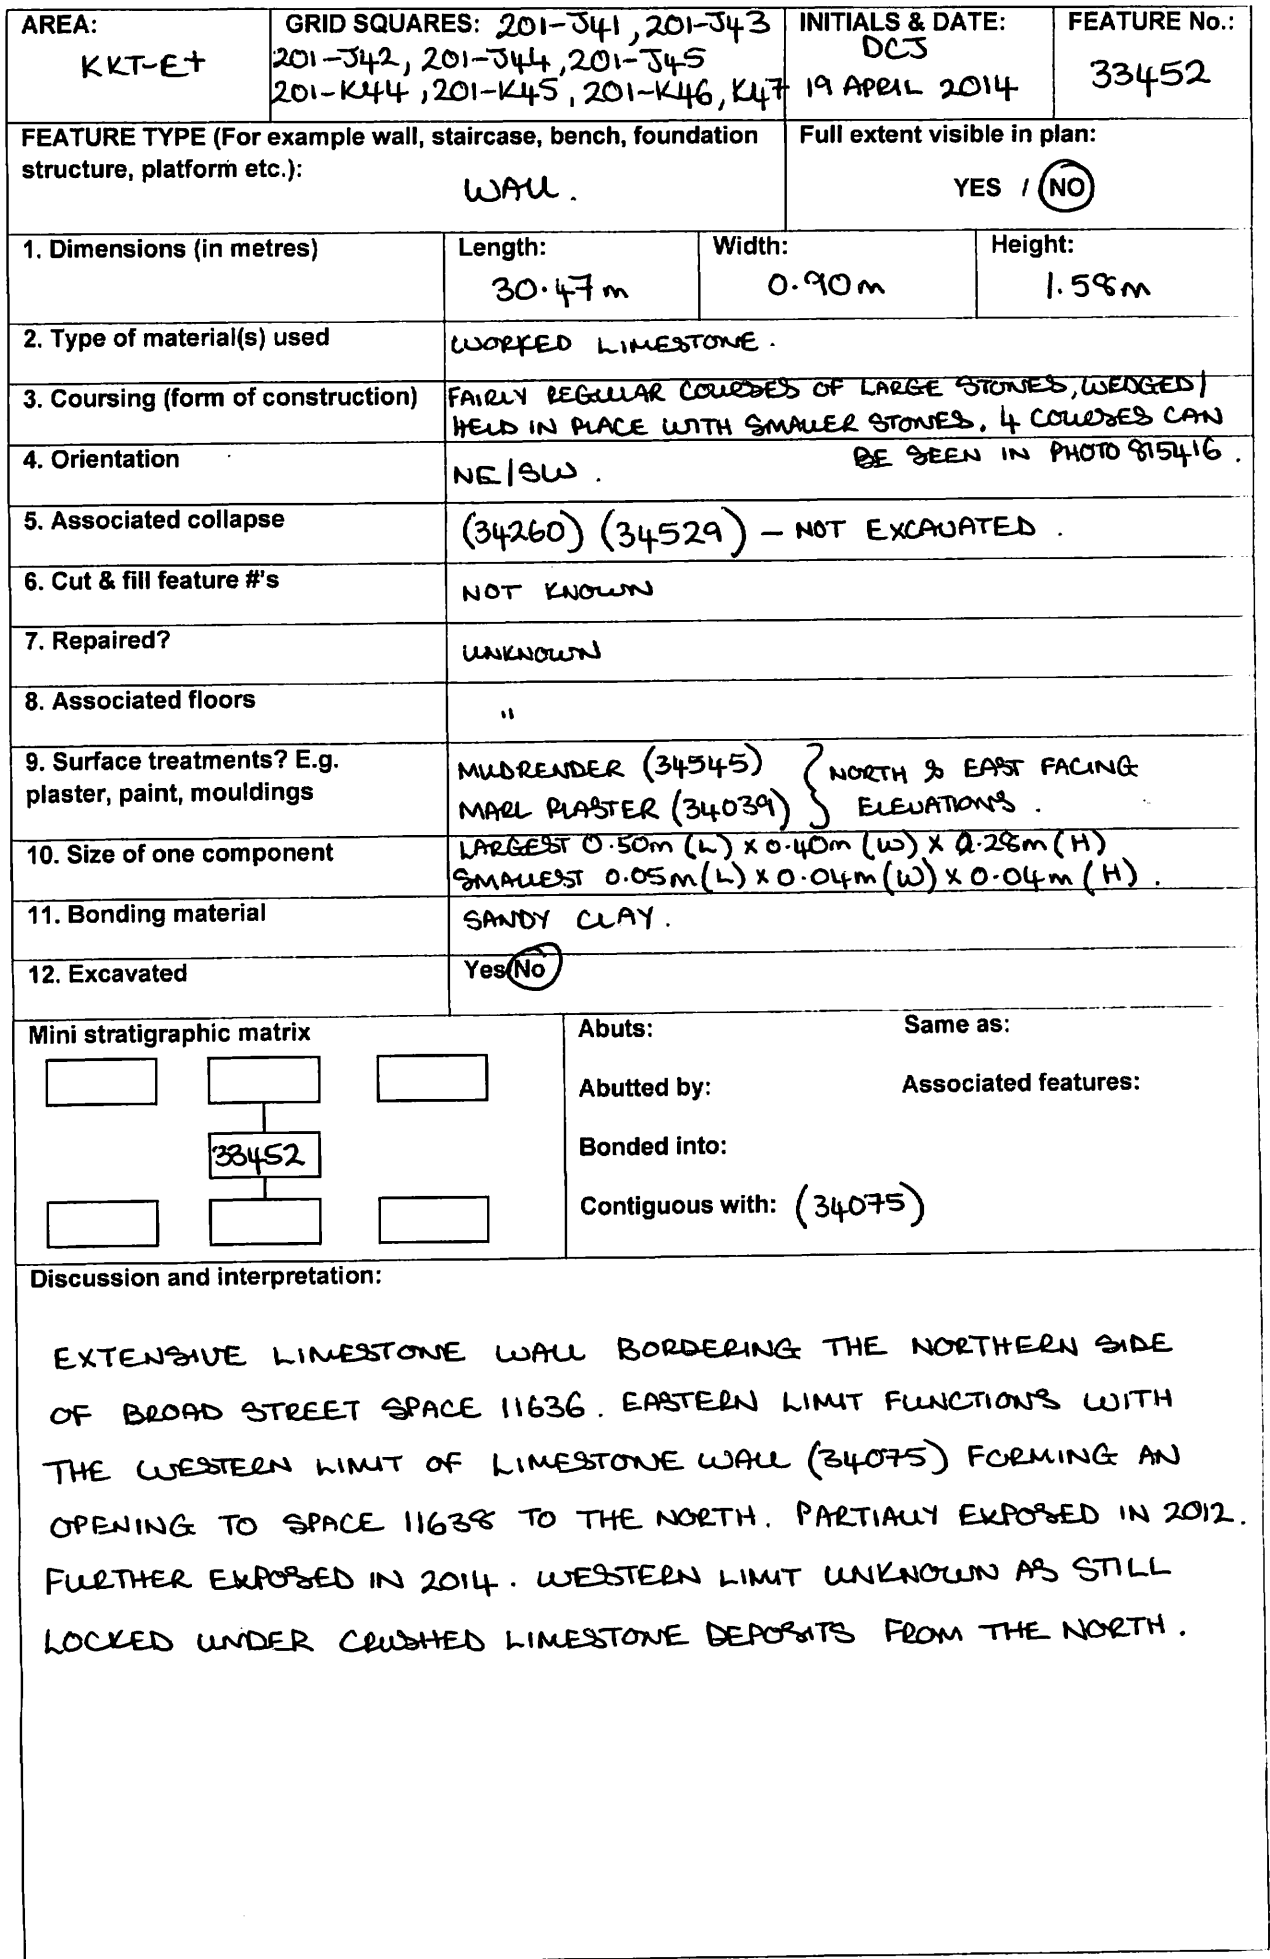 AREA:
KKT-E+
GRID SQUARES: 201-J41, 201-J43
201-J42, 201-J44, 201-J45
201-K44, 201-K45, 201-K46, K47
INITIALS & DATE:
DCJ
19 APRIL 2014
FEATURE No.:
33452
FEATURE TYPE (For example wall, staircase, bench, foundation
structure, platform etc.):
WALL.
Full extent visible in plan:
YES / NO
1. Dimensions (in metres)
Length:
30.47m
Width:
0.90m
Height:
1.58m
2. Type of material(s) used
WORKED LIMESTONE.
3. Coursing (form of construction)
FAIRLY REGULAR COURSES OF LARGE STONES, WEDGED/
HELD IN PLACE WITH SMALLER STONES. 4 COURSES CAN
BE SEEN IN PHOTO 815416.
4. Orientation
NE/SW.
5. Associated collapse
(34260) (34529) – NOT EXCAVATED.
6. Cut & fill feature #'s
NOT KNOWN
7. Repaired?
UNKNOWN
8. Associated floors
"
9. Surface treatments? E.g.
plaster, paint, mouldings
MUDRENDER (34545) } NORTH & EAST FACING
MARL PLASTER (34039) } ELEVATIONS.
10. Size of one component
LARGEST 0.50m (L) x 0.40m (W) x 0.28m (H)
SMALLEST 0.05m (L) x 0.04m (W) x 0.04m (H).
11. Bonding material
SANDY CLAY.
12. Excavated
Yes/No
Mini stratigraphic matrix
33452
Abuts:
Same as:
Abutted by:
Associated features:
Bonded into:
Contiguous with: (34075)
Discussion and interpretation:
EXTENSIVE LIMESTONE WALL BORDERING THE NORTHERN SIDE
OF BROAD STREET SPACE 11636. EASTERN LIMIT FUNCTIONS WITH
THE WESTERN LIMIT OF LIMESTONE WALL (34075) FORMING AN
OPENING TO SPACE 11638 TO THE NORTH. PARTIALLY EXPOSED IN 2012.
FURTHER EXPOSED IN 2014. WESTERN LIMIT UNKNOWN AS STILL
LOCKED UNDER CRUSHED LIMESTONE DEPOSITS FROM THE NORTH.